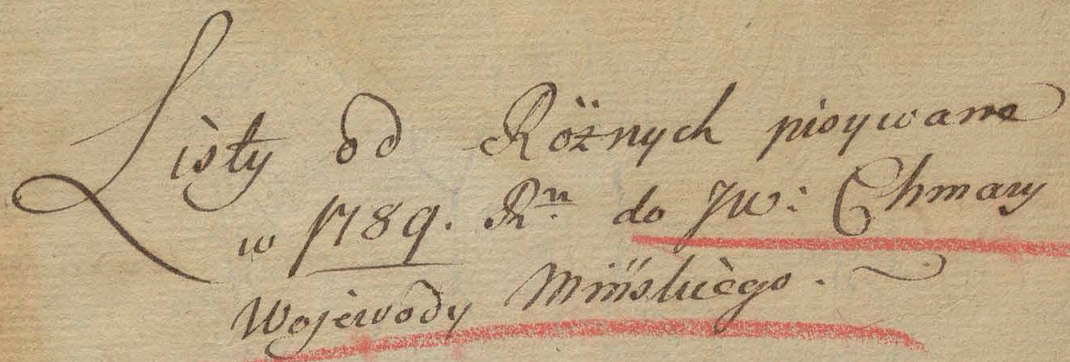 Listy od Różnych pisywane
w 1789. Ru do JW: Chmary
Wojewody Mińskiego.